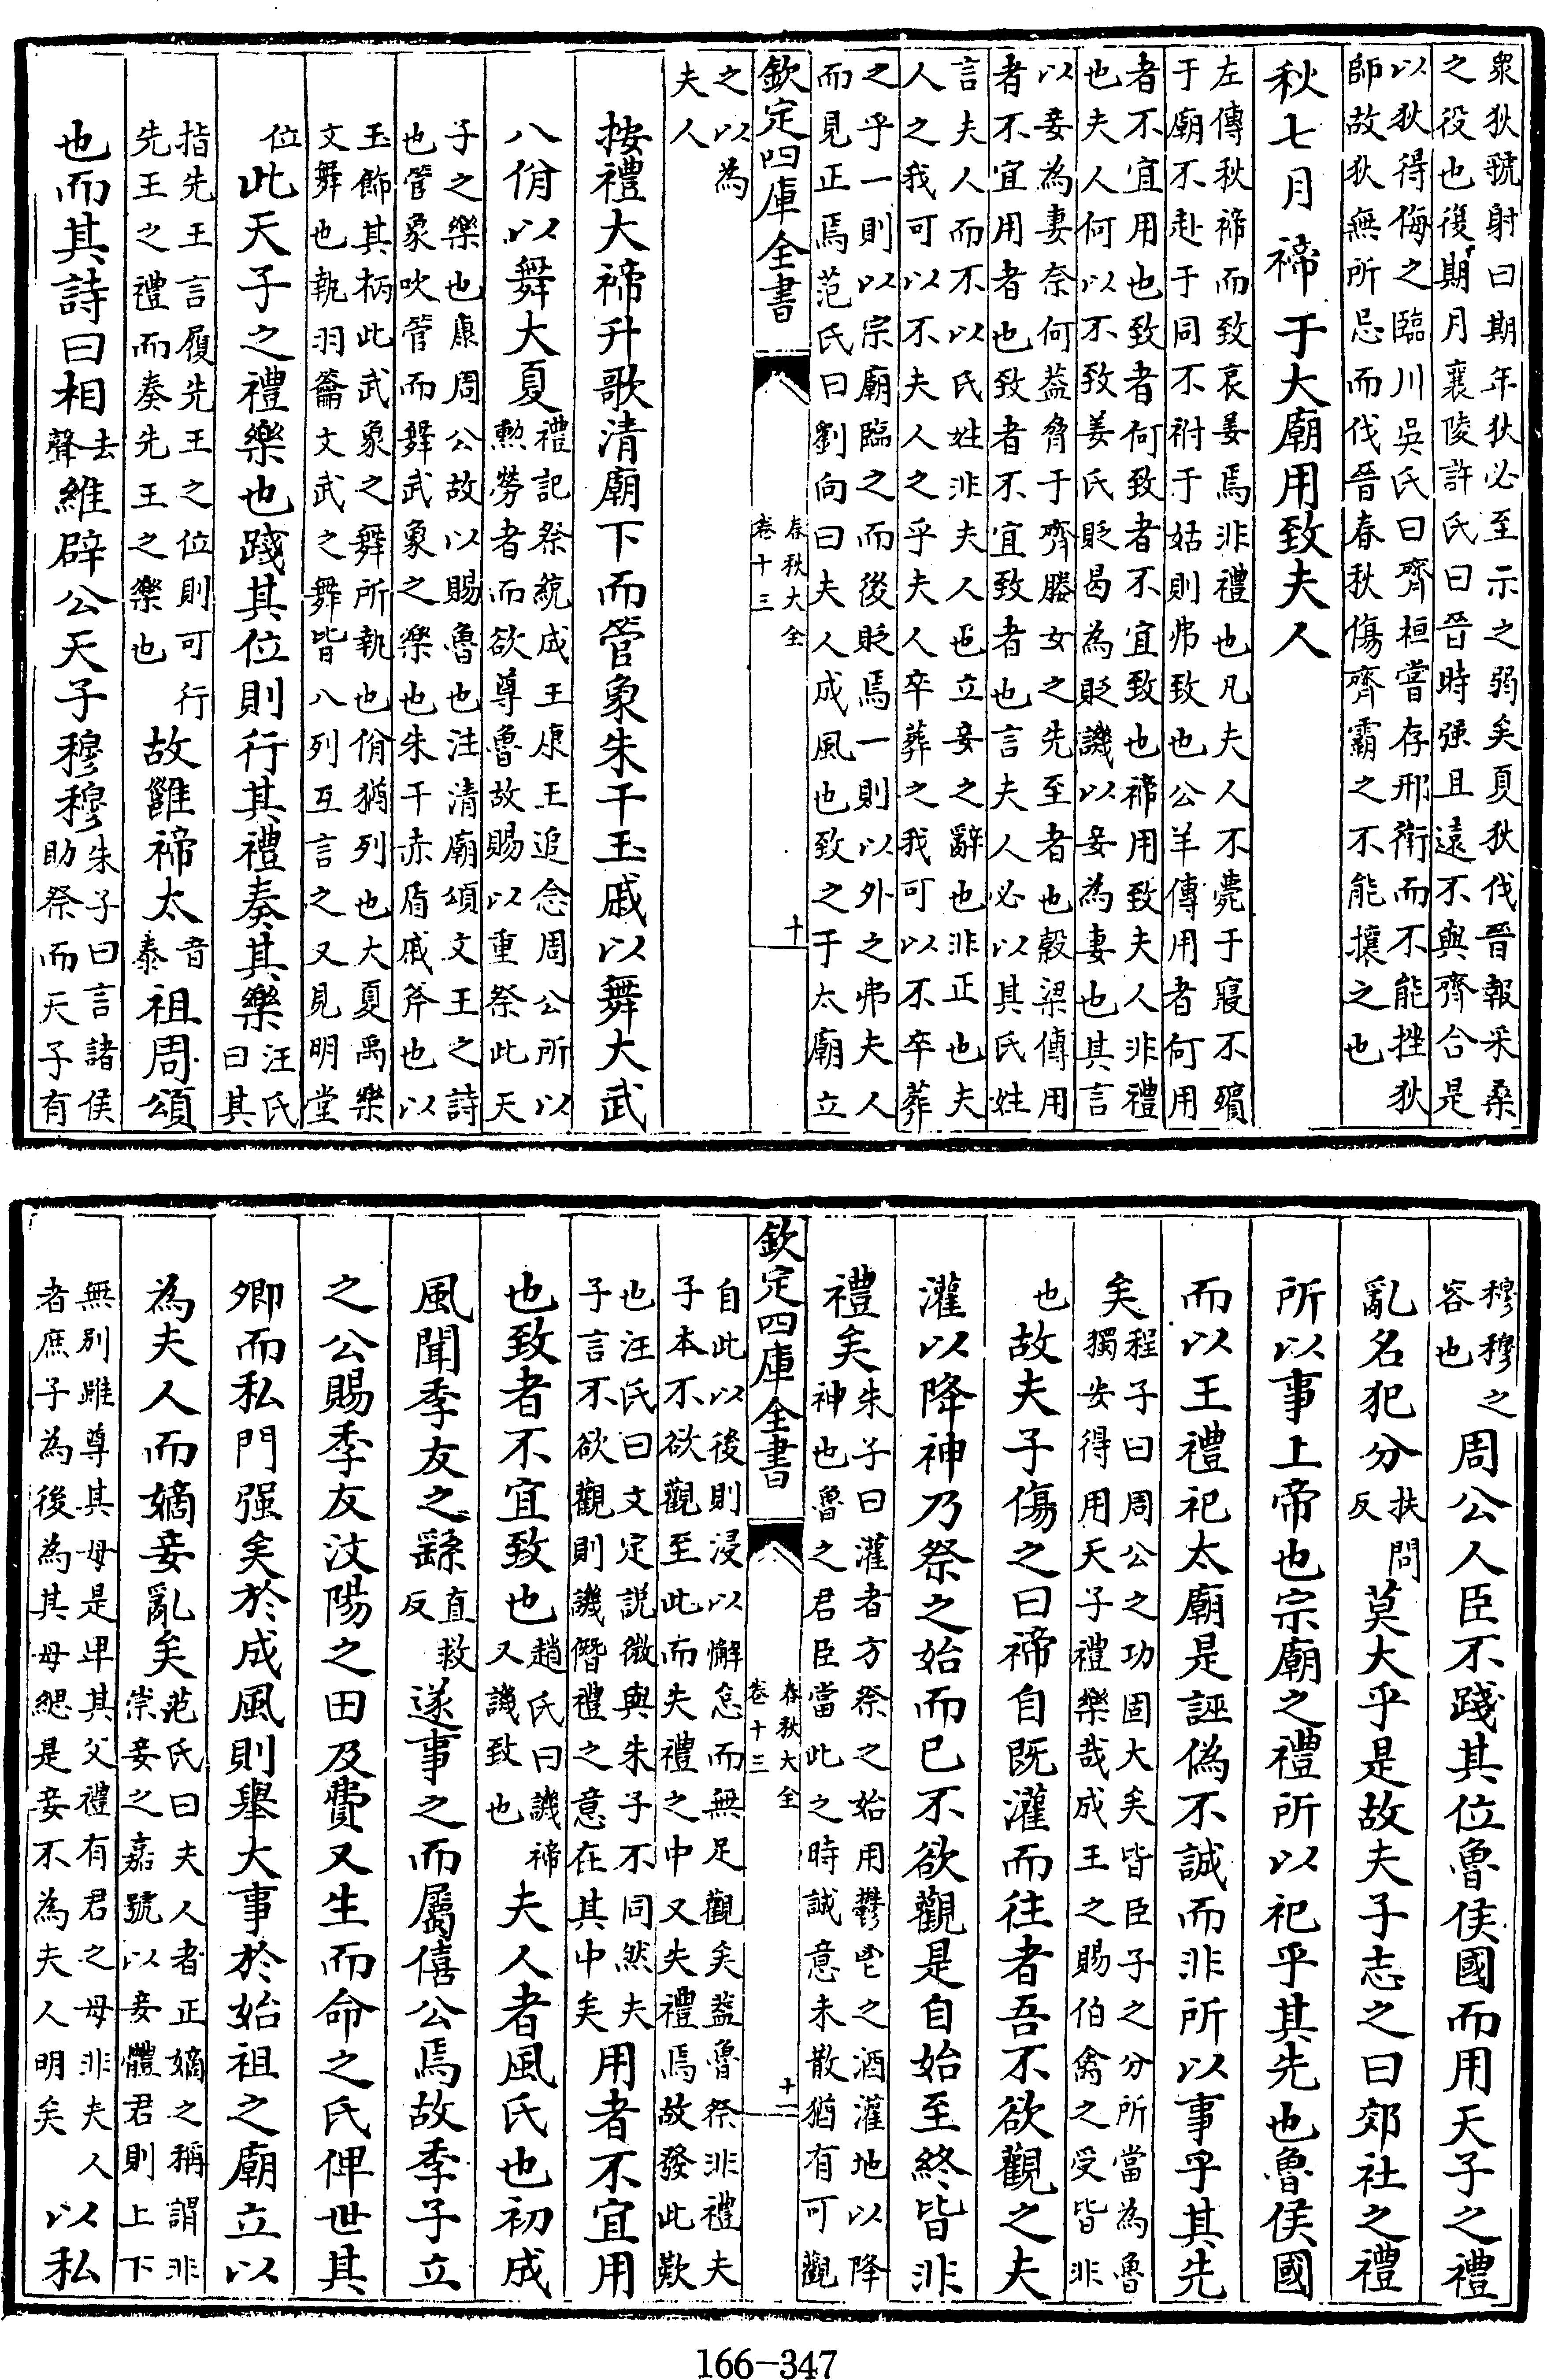 衆狄虢射曰期年狄必至示之弱矣夏狄伐晉報采桑
之役也復期月襄陵許氏曰晉時强且遠不與齊合是
以狄得侮之臨川吳氏曰齊桓嘗存邢衛而不能挫狄
師故狄無所忌而伐晉春秋傷齊霸之不能攘之也
秋七月禘于大廟用致夫人
左傳秋禘而致哀姜焉非禮也凡夫人不薨于寢不殯
于廟不赴于同不祔于姑則弗致也公羊傳用者何用
者不宜用也致者何致者不宜致也禘用致夫人非禮
也夫人何以不致姜氏貶曷為貶譏以妾為妻也其言
以妾為妻奈何葢脅于齊媵女之先至者也穀梁傳用
者不宜用者也致者不宜致者也言夫人必以其氏姓
言夫人而不以氏姓非夫人也立妾之辭也非正也夫
人之我可以不夫人之乎夫人卒葬之我可以不卒葬
之乎一則以宗廟臨之而後貶焉一則以外之弗夫人
而見正焉范氏曰劉向曰夫人成風也致之于太廟立
欽定四庫全書
春秋大全
卷十三
十
之以為
夫人
按禮大禘升歌清廟下而管象朱干玉戚以舞大武
八佾以舞大夏禮記祭統成王康王追念周公所以
勲勞者而欲尊魯故賜以重祭此天
子之樂也康周公故以賜魯也注清廟頌文王之詩
也管象吹管而舞武象之樂也朱干赤盾戚斧也以
玉飾其柄此武象之舞所執也佾猶列也大夏禹樂
文舞也執羽籥文武之舞皆八列互言之又見明堂
位此天子之禮樂也踐其位則行其禮奏其樂汪氏
曰其
指先王言履先王之位則可行
先王之禮而奏先王之樂也故雝禘太音
泰祖周頌
也而其詩曰相去
聲維辟公天子穆穆朱子曰言諸侯
助祭而天子有
穆穆之
容也周公人臣不踐其位魯侯國而用天子之禮
亂名犯分扶問
反莫大乎是故夫子志之曰郊社之禮
所以事上帝也宗廟之禮所以祀乎其先也魯侯國
而以王禮祀太廟是誣偽不誠而非所以事乎其先
矣程子曰周公之功固大矣皆臣子之分所當為魯
獨安得用天子禮樂哉成王之賜伯禽之受皆非
也故夫子傷之曰禘自既灌而往者吾不欲觀之夫
灌以降神乃祭之始而已不欲觀是自始至終皆非
禮矣朱子曰灌者方祭之始用鬱鬯之酒灌地以降
神也魯之君臣當此之時誠意未散猶有可觀
欽定四庫全書
春秋大全
卷十三
十一
自此以後則浸以懈怠而無足觀矣葢魯祭非禮夫
子本不欲觀至此而失禮之中又失禮焉故發此歎
也汪氏曰文定説微與朱子不同然夫
子言不欲觀則譏僭禮之意在其中矣用者不宜用
也致者不宜致也趙氏曰譏禘
又譏致也夫人者風氏也初成
風聞季友之繇直救
反遂事之而屬僖公焉故季子立
之公賜季友汶陽之田及費又生而命之氏俾世其
卿而私門强矣於成風則舉大事於始祖之廟立以
為夫人而嫡妾亂矣范氏曰夫人者正嫡之稱謂非
崇妾之嘉號以妾體君則上下
無别雖尊其母是卑其父禮有君之母非夫人
者庶子為後為其母緦是妾不為夫人明矣以私
166-347